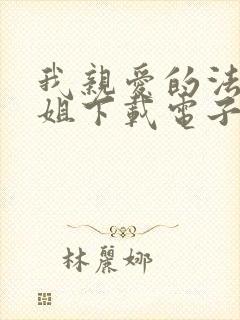 我親愛的法
姐下載電子
林麗娜